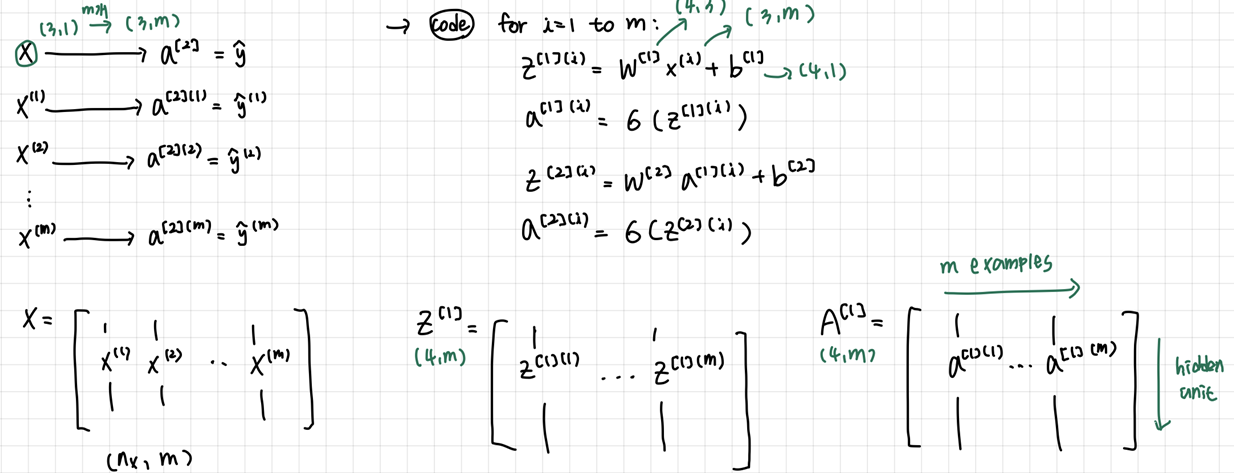 (3,1) m개→ (3,m)
X ⟶ a^[2] = ŷ
X^(1) ⟶ a^[2](1) = ŷ^(1)
X^(2) ⟶ a^[2](2) = ŷ^(2)
⋮
X^(m) ⟶ a^[2](m) = ŷ^(m)
→ code for i=1 to m:
(4,3) (3,m)
z^[1](i) = W^[1] x^(i) + b^[1] → (4,1)
a^[1](i) = 6(z^[1](i))
z^[2](i) = W^[2] a^[1](i) + b^[2]
a^[2](i) = 6(z^[2](i))
X = [ x^(1) x^(2) ‥ x^(m) ]
(nx, m)
Z^[1] = [ z^[1](1) … z^[1](m) ]
(4,m)
m examples
A^[1] = [ a^[1](1) … a^[1](m) ]
(4,m)
hidden
unit